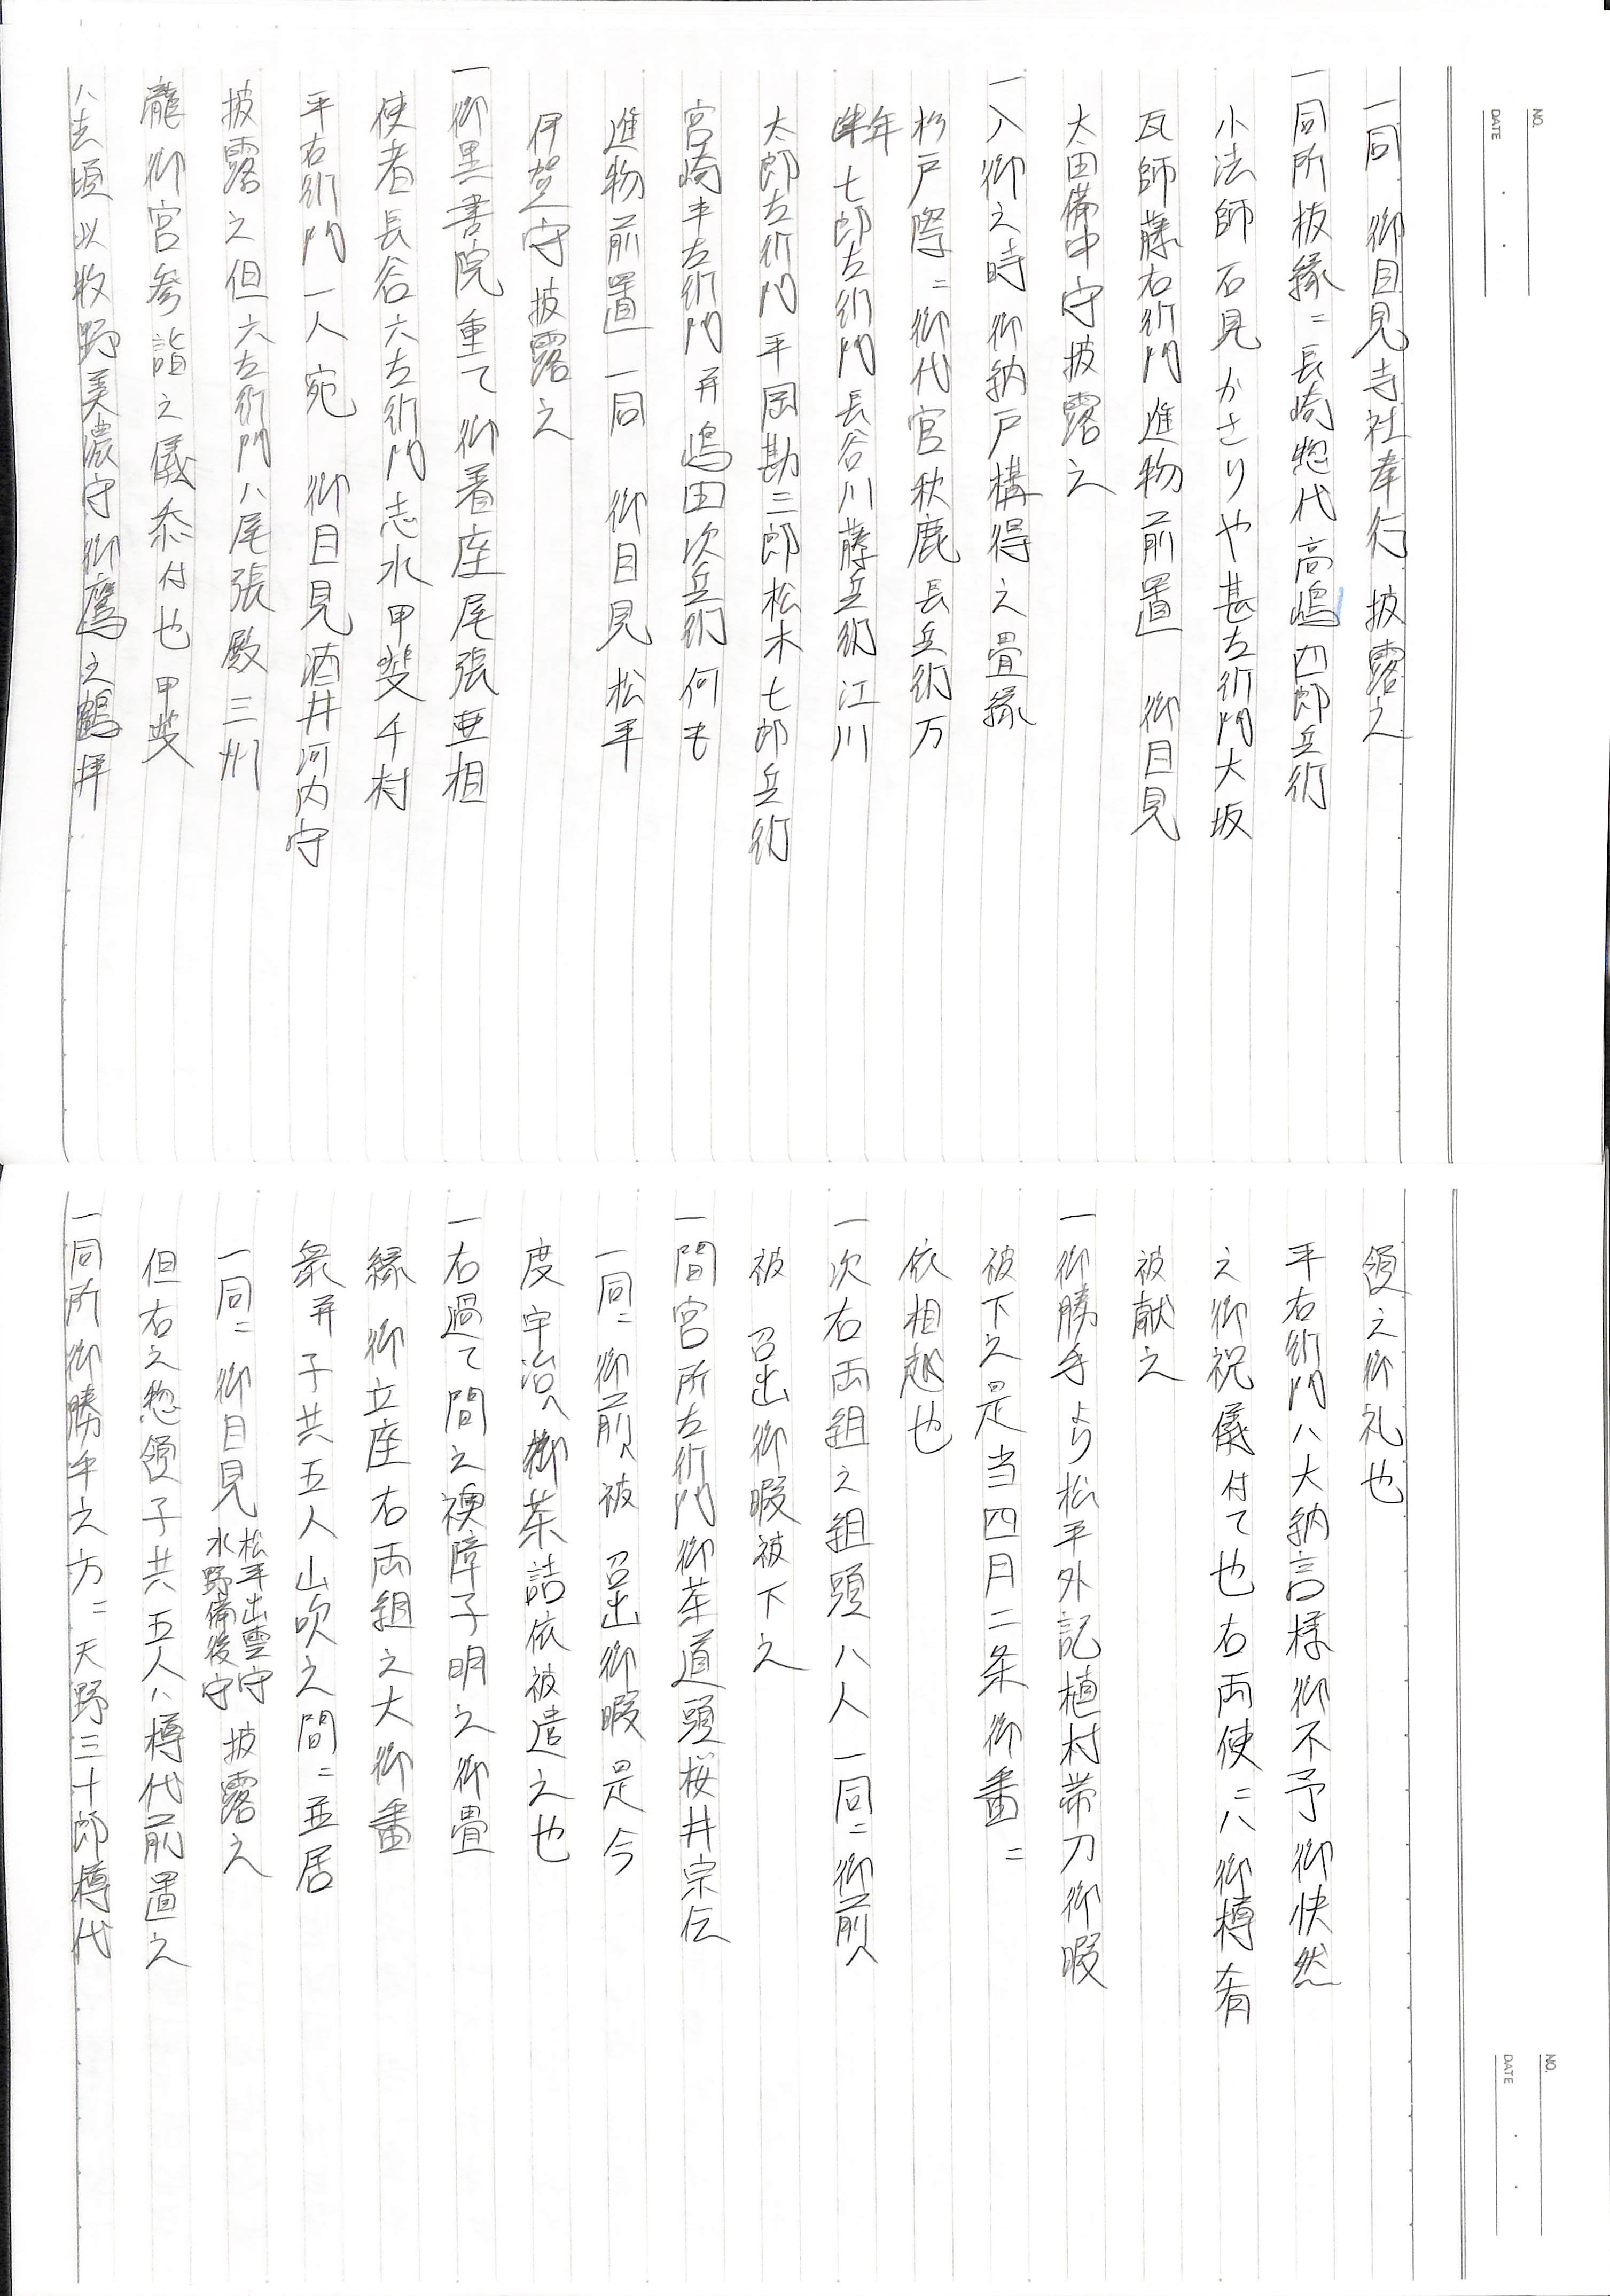 NO.
DATE
一同　御目見寺社奉行　披露之
一同所板縁ニ長崎惣代高嶋四郎兵衛
小法師石見かさりや甚左衛門大坂
瓦師藤右衛門進物前置　御目見
大田備中守披露之
一入御之時御納戸構得之畳縁
杉戸際ニ御代官秋鹿長兵衛万
年七郎左衛門長谷川藤兵衛江川
太郎左衛門平岡勘三郎松木七郎兵衛
宮崎半左衛門并嶋田次兵衛何も
進物前置一同　御目見松平
伊賀守披露之
一御黒書院重て御着座尾張亜相
使者長谷六左衛門志水甲斐千村
平右衛門一人宛　御目見酒井河内守
披露之但六左衛門ハ尾張殿三州
龍御宮参詣之儀忝付也甲斐
ハ去頃以牧野美濃守御鷹之鶴拝
NO.
DATE
領之御礼也
平右衛門ハ大納言様御不予御快然
之御祝儀付て也右両使ニハ御樽肴
被献之
一御勝手より松平外記植村帯刀御暇
被下之是当四月二条御番ニ
依相越也
一次右両組之組頭八人一同ニ御前へ
被　召出御暇被下之
一間宮所左衛門御茶道頭桜井宗伝
一同ニ御前へ被　召出御暇是今
度宇治へ御茶詰依被遣之也
一右過て間之襖障子明之御畳
縁　御立座右両組之大御番
衆并子共五人山吹之間ニ並居
一同ニ御目見　松平出雲守　水野備後守　披露之
但右之惣領子共五人ハ樽代前置之
一同所御勝手之方ニ天野三十郎樽代